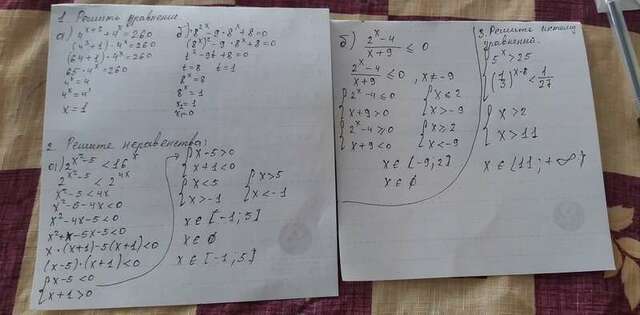 1. Решить уравнение
а) 4^x+3 + 4^x = 260
(4^3+1)·4^x=260
(64+1)·4^x=260
65·4^x=260
4^x=4
4^x=4^1
x=1
б) 8^2x-9·8^x+8=0
(8^x)^2-9·8^x+8=0
t^2-9t+8=0
t=8 t=1
8^x=8
8^x=1
x=1
x=0
2. Решите неравенства:
а) 2^x^2-5 < 16^x
2^x^2-5 < 2^4x
x^2-5<4x
x^2-5-4x<0
x^2-4x-5<0
x^2+x-5x-5<0
x·(x+1)-5(x+1)<0
(x-5)·(x+1)<0
{x-5<0
x+1>0
{x-5>0
x+1<0
{x<5
x>-1
{x>5
x<-1
x∈[-1,5]
x∈∅
x∈[-1,5]
б) 2^x-4/x+9 ≤ 0
2^x-4/x+9 ≤0, x≠-9
{2^x-4≤0
x+9>0
{2^x-4≥0
x+9<0
{x≤2
x>-9
{x≥2
x<-9
x∈[-9,2]
x∈∅
3. Решите систему
уравнения.
{5^x>25
(1/3)^x-8<1/27
{x>2
x>11
x∈[11;+∞)